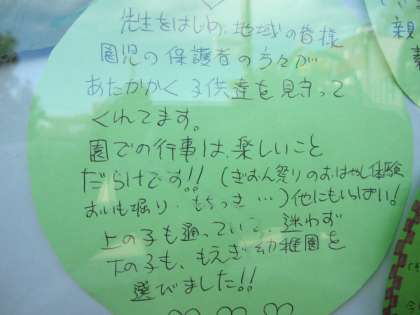 先生をはじめ、地域の皆様
園児の保護者の方々が
あたたかく子供達を見守って
くれてます。
園での行事は、楽しいこと
だらけです!!(ぎおん祭りのおはやし体験
おいも掘り、もちつき…)他にもいっぱい!
上の子も通っていて、迷わず
下の子も、もえぎ幼稚園を
選びました!!
親